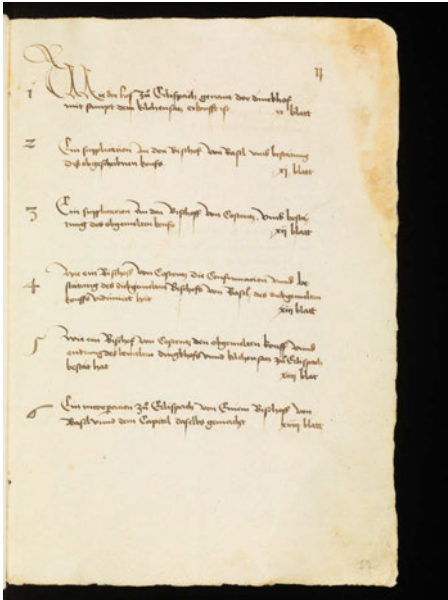 II
1 Wie der hof zů Erlispach genant der dinckhof
mit sampt dem kilchensatz erkoufft ist ix blatt
2 Ein supplication An den Bischof von Basel vmb bestätung
des obgeschribnen koufs xj blatt
3 Ein supplication An den Bischoff von Costentz vmb bestä-
tung des obgemelten koufs xij blatt
4 Wie ein Bischof von Costentz die Confirmacion vnnd be-
statung des obgemelten Bischofs von Basel des obgemelten
kouffs vidimiert hat xiij blatt
5 Wie ein Bischof von Costentz den obgemelten kouff vnnd
des dinghofs vnnd kilchensatz zů Erlispach
bestät hat xiij blat
6 Ein zů Erlispach von Einem Bischoff von
Basel vnnd dem Capitel daselbs gemacht xiiij blatt
52